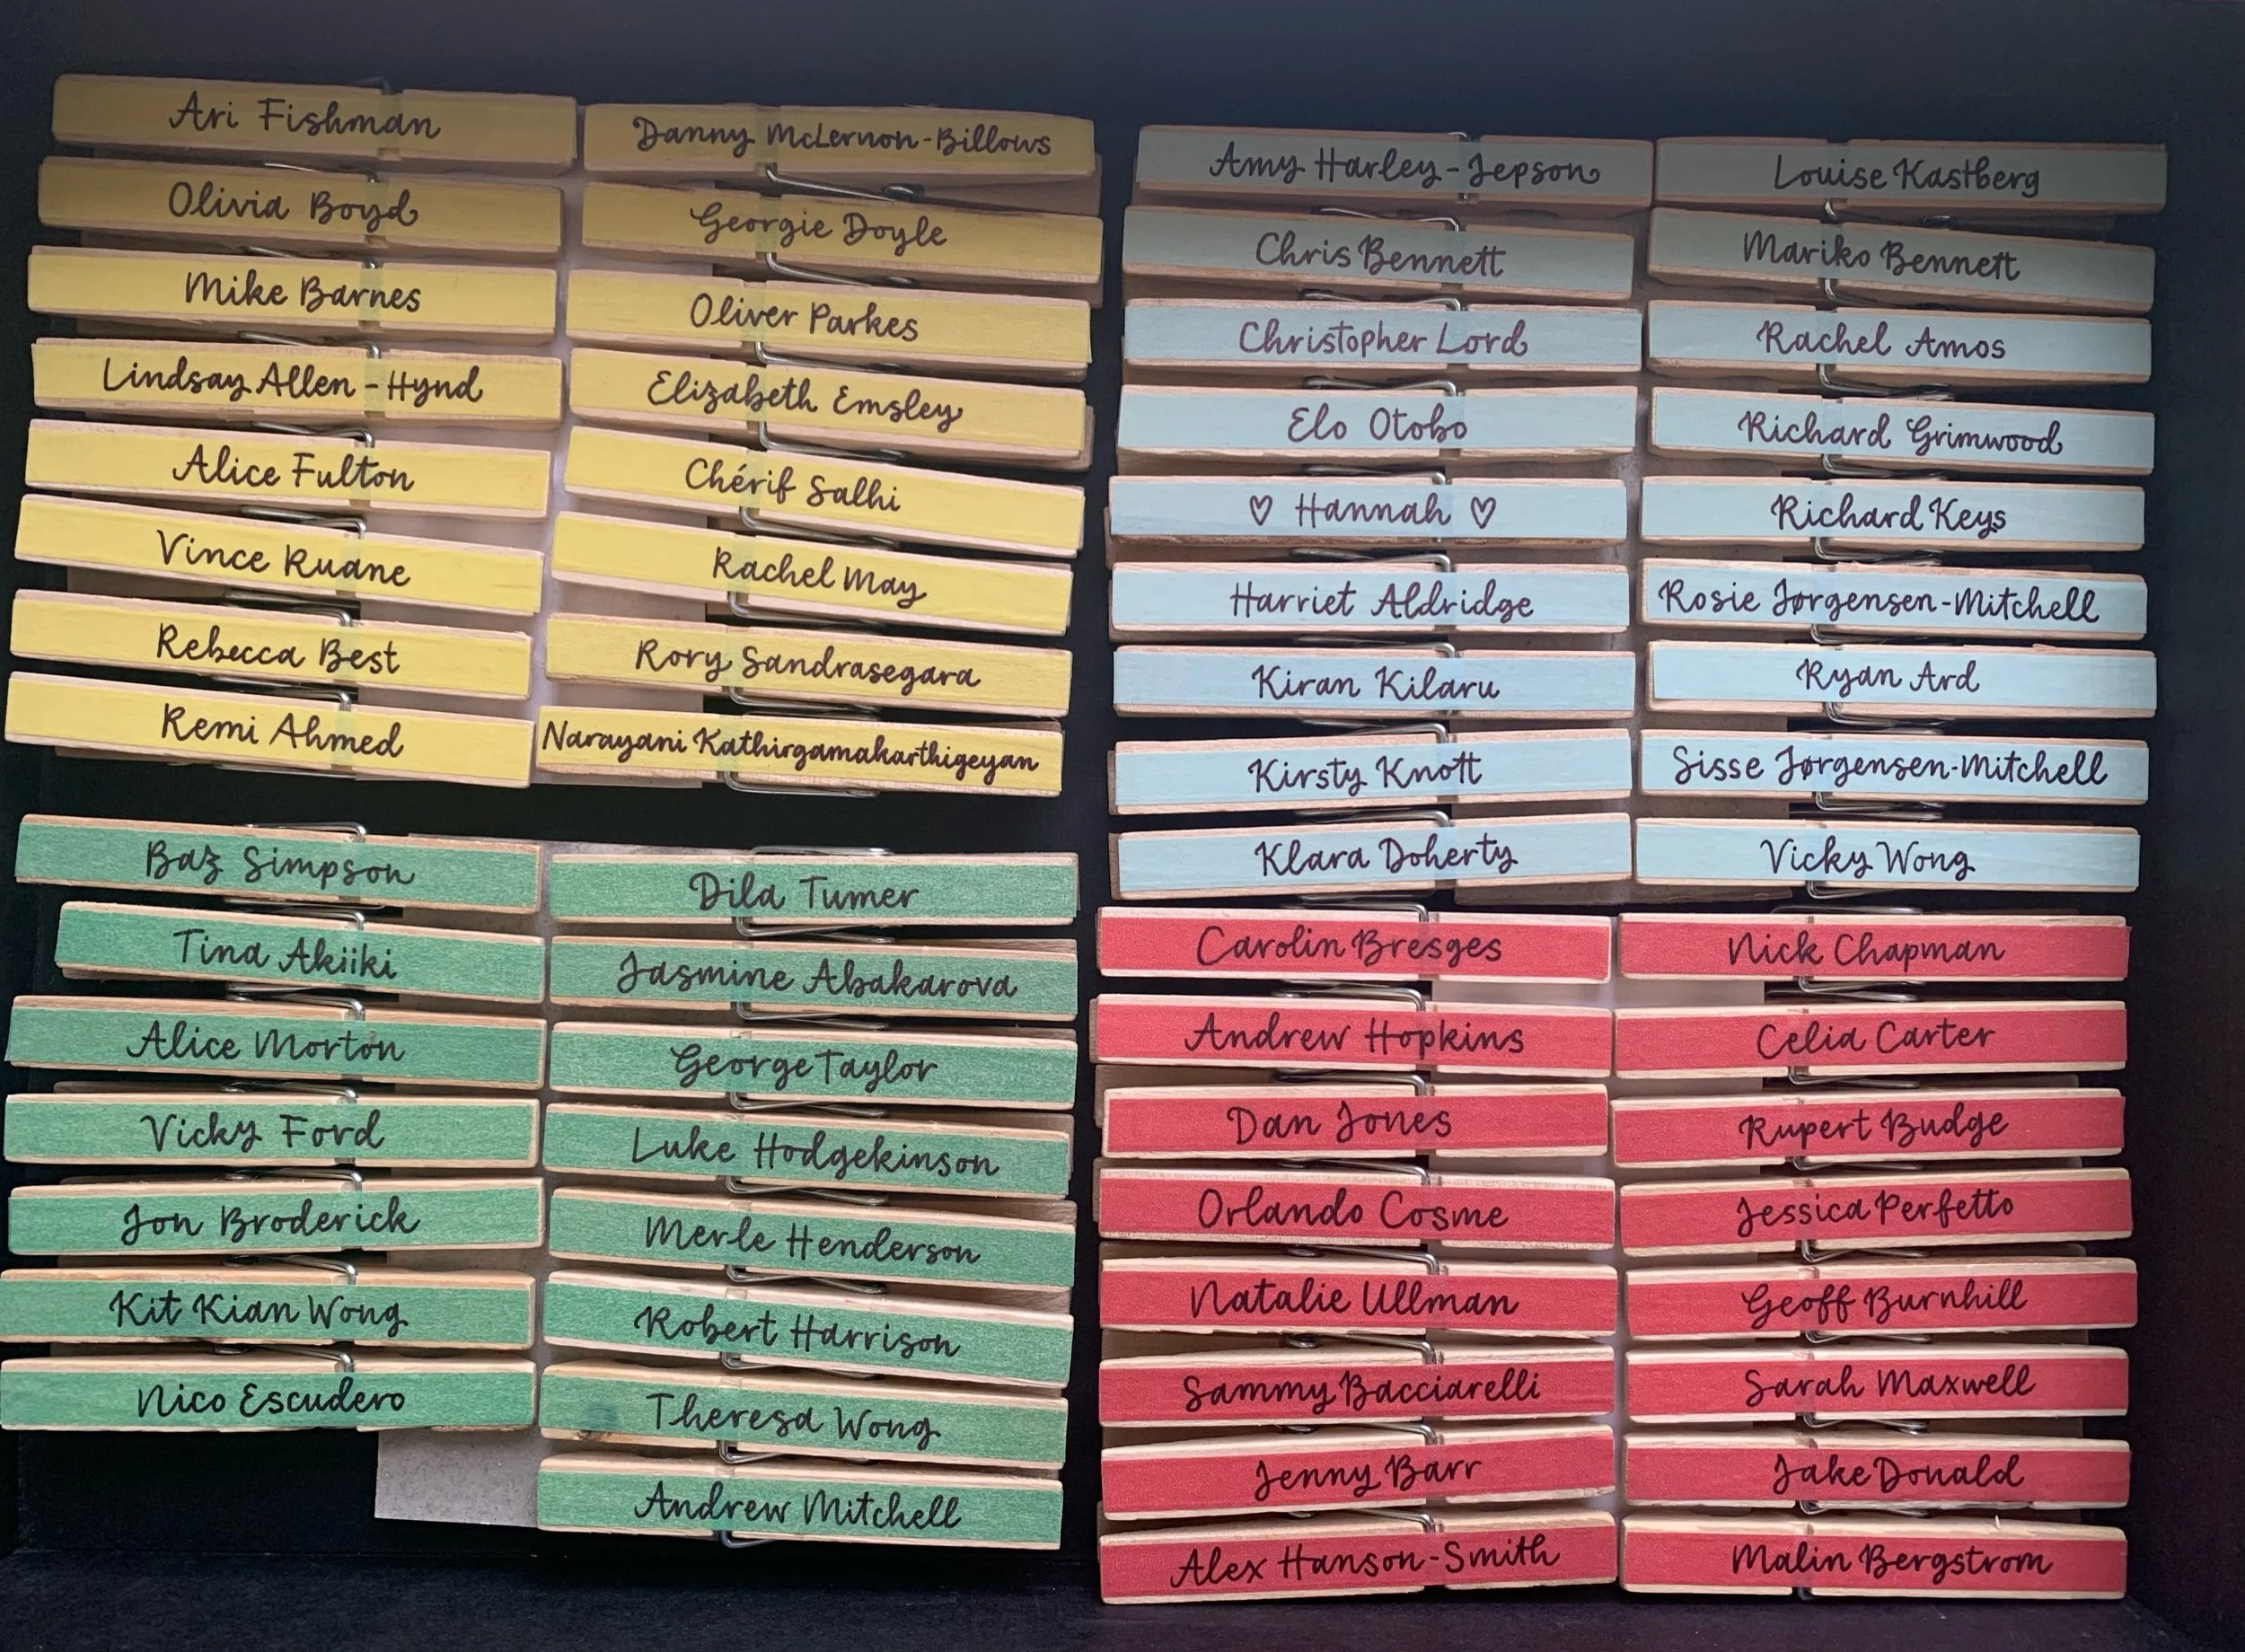 Ari Fishman
Olivia Boyd
Mike Barnes
Lindsay Allen-Hynd
Alice Fulton
Vince Ruane
Rebecca Best
Remi Ahmed
Danny McLernon-Billows
Georgie Doyle
Oliver Parkes
Elizabeth Emsley
Chérif Salhi
Rachel May
Rory Sandrasegara
Narayani Kathirgamakarthigeyan
Baz Simpson
Tina Akiiki
Alice Morton
Vicky Ford
Jon Broderick
Kit Kian Wong
Nico Escudero
Dila Tumer
Jasmine Abakarova
George Taylor
Luke Hodgekinson
Merle Henderson
Robert Harrison
Theresa Wong
Andrew Mitchell
Amy Harley-Jepson
Chris Bennett
Christopher Lord
Elo Otobo
♡ Hannah ♡
Harriet Aldridge
Kiran Kilaru
Kirsty Knott
Klara Doherty
Louise Kastberg
Mariko Bennett
Rachel Amos
Richard Grimwood
Richard Keys
Rosie Jørgensen-Mitchell
Ryan Ard
Sisse Jørgensen-Mitchell
Vicky Wong
Carolin Bresges
Andrew Hopkins
Dan Jones
Orlando Cosme
Natalie Ullman
Sammy Bacciarelli
Jenny Barr
Alex Hanson-Smith
Nick Chapman
Celia Carter
Rupert Budge
Jessica Perfetto
Geoff Burnhill
Sarah Maxwell
Jake Donald
Malin Bergstrom